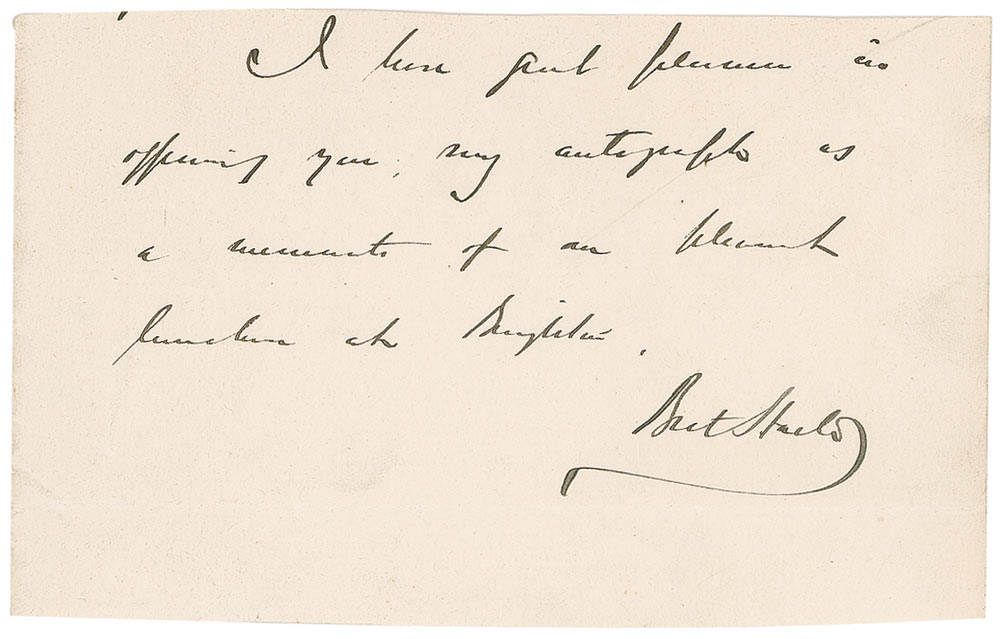 I have great pleasure in
offering you, my autograph as
a memento of our pleasant
luncheon at Brighton.
Bret Harte